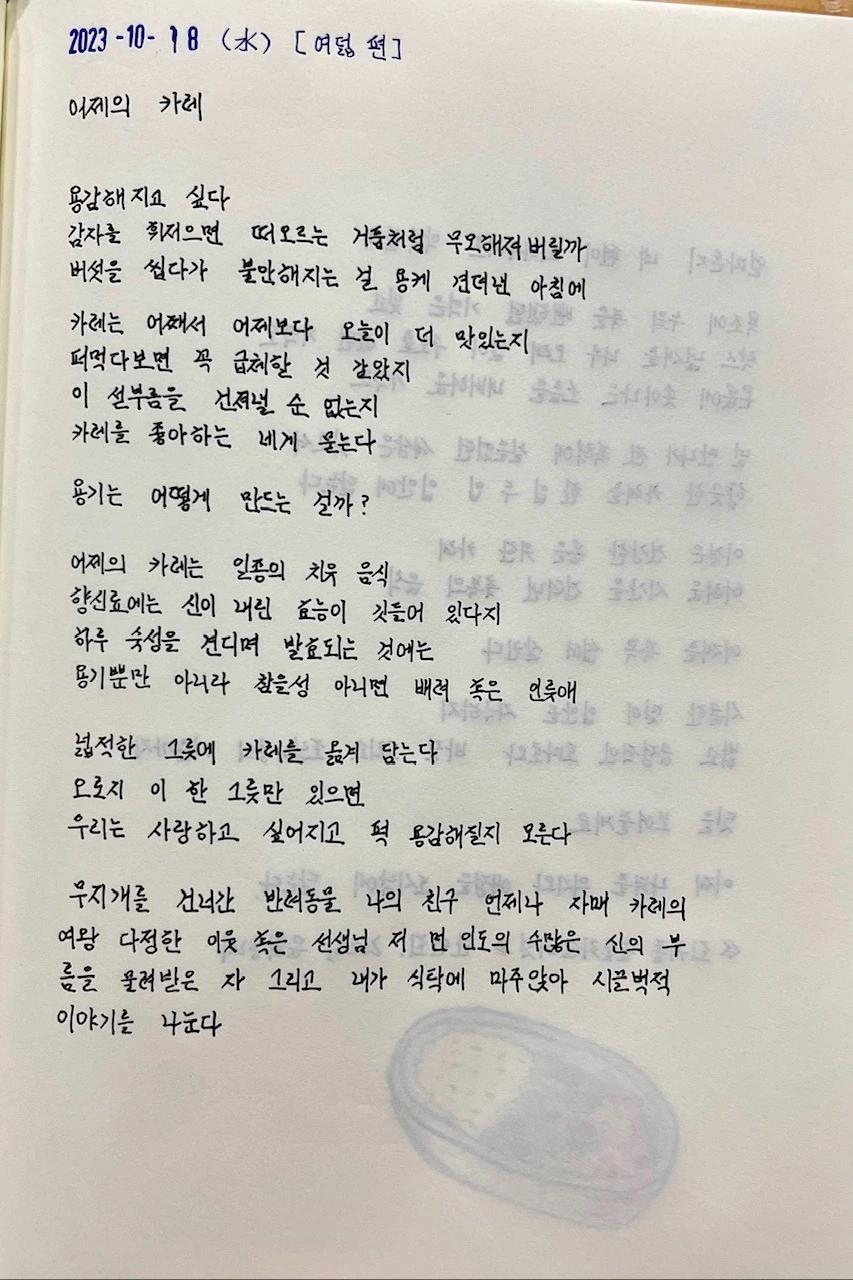 2023-10-18 (水) [여덟 편]
어제의 카레
용감해지고 싶다
감자를 휘저으면 떠오르는 거품처럼 무모해져버릴까
버섯을 씹다가 불안해지는 걸 용케 견뎌낸 아침에
카레는 어째서 어제보다 오늘이 더 맛있는지
퍼먹다보면 꼭 급체할 것 같았지
이 섣부름을 건져낼 순 없는지
카레를 좋아하는 네게 묻는다
용기는 어떻게 만드는 걸까?
어제의 카레는 일종의 치유 음식
향신료에는 신이 내린 효능이 깃들어 있다지
하루 숙성을 견디며 발효되는 것에는
용기뿐만 아니라 참을성 아니면 배려 혹은 인류애
넓적한 그릇에 카레를 옮겨 담는다
오로지 이 한 그릇만 있으면
우리는 사랑하고 싶어지고 퍽 용감해질지 모른다
무지개를 건너간 반려동물 나의 친구 언제나 자매 카레의
여왕 다정한 이웃 혹은 선생님 저 먼 인도의 수많은 신의 부
름을 물려받은 자 그리고 내가 식탁에 마주앉아 시끌벅적
이야기를 나눈다